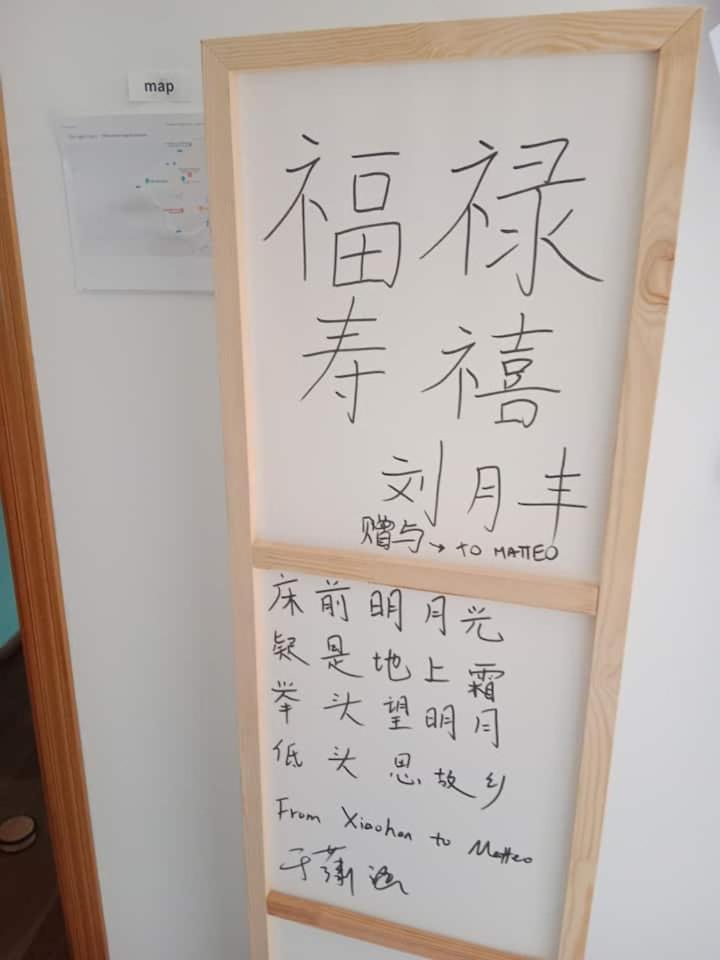 map
福禄
寿禧
刘月丰
赠与→ TO MATTEO
床前明月光
疑是地上霜
举头望明月
低头思故乡
From Xiaohan to Matteo